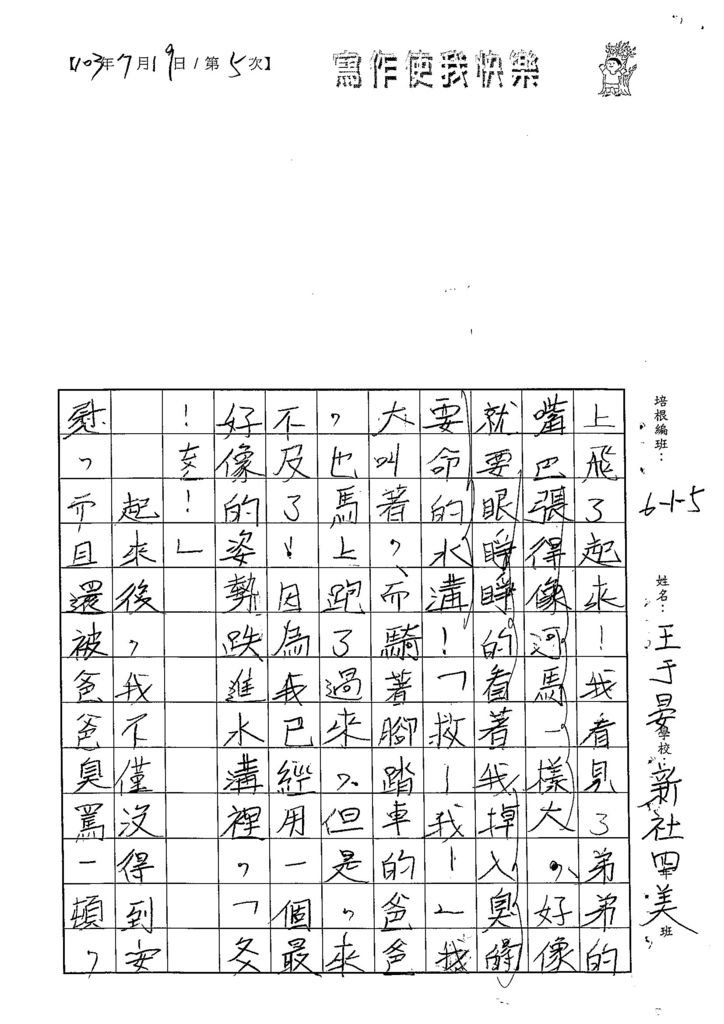 【103年7月19日/第5次】
寫作使我快樂
培根編班：6-1-5
姓名：王于晏
學校：新社四年美班
上飛了起來！我看見了弟弟的
嘴巴張得像河馬一樣大，好像
就要眼睜睜的看著我掉入臭
要命的水溝！「救！我！」我
大叫著，而騎著腳踏車的爸爸
，也馬上跑了過來，但是，來
不及了！因為我已經用一個最
好像的姿勢跌進水溝裡，「冬
！！」
起來後，我不僅沒得到安
慰，而且還被爸爸臭罵一頓，